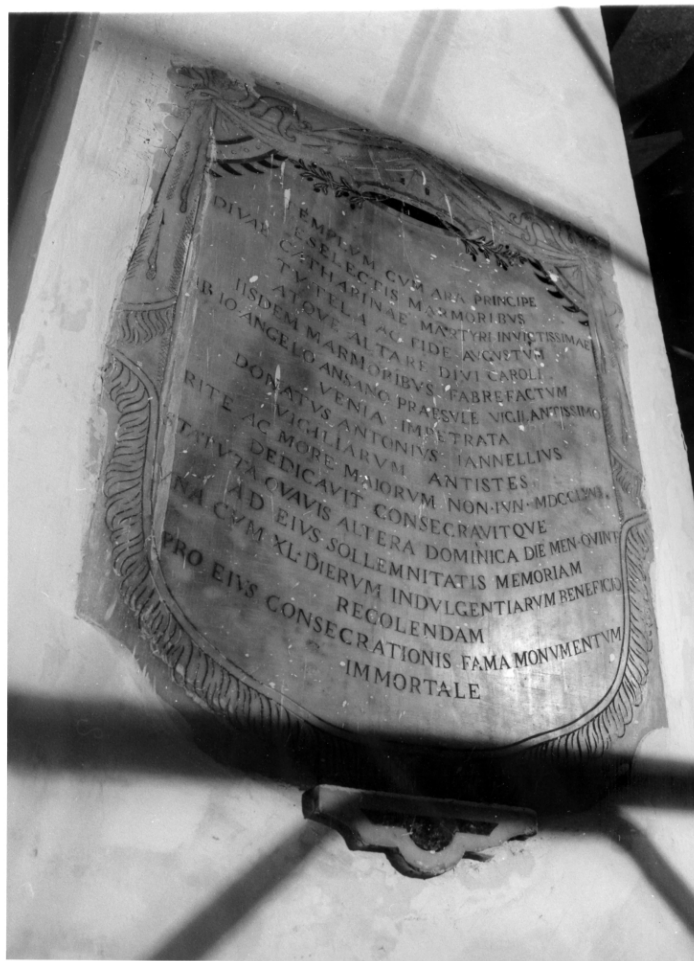 EMPLVM CVM ARA PRINCIPE
E SELECTIS MARMORIBVS
DIVAE CATHARINAE MARTYRI INVICTISSIMAE
TVTELA AC FIDE AVGVSTVM
ATQVE ALTARE DIVI CAROLI
IISDEM MARMORIBVS FABREFACTVM
AB IO ANGELO ANSANO PRAESVLE VIGILANTISSIMO
VENIA IMPETRATA
DONATVS ANTONIVS IANNELLIVS
VIGILIARVM ANTISTES
RITE AC MORE MAIORVM NON·IVN·
DEDICAVIT CONSECRAVITQVE
STATVTA QVAVIS ALTERA DOMINICA DIE MEN·QVINT
AD EIVS SOLLEMNITATIS MEMORIAM
VNA CVM XL·DIERVM INDVLGENTIARVM BENEFICIO
RECOLENDAM
PRO EIVS CONSECRATIONIS FAMA MONVMENTVM
IMMORTALE